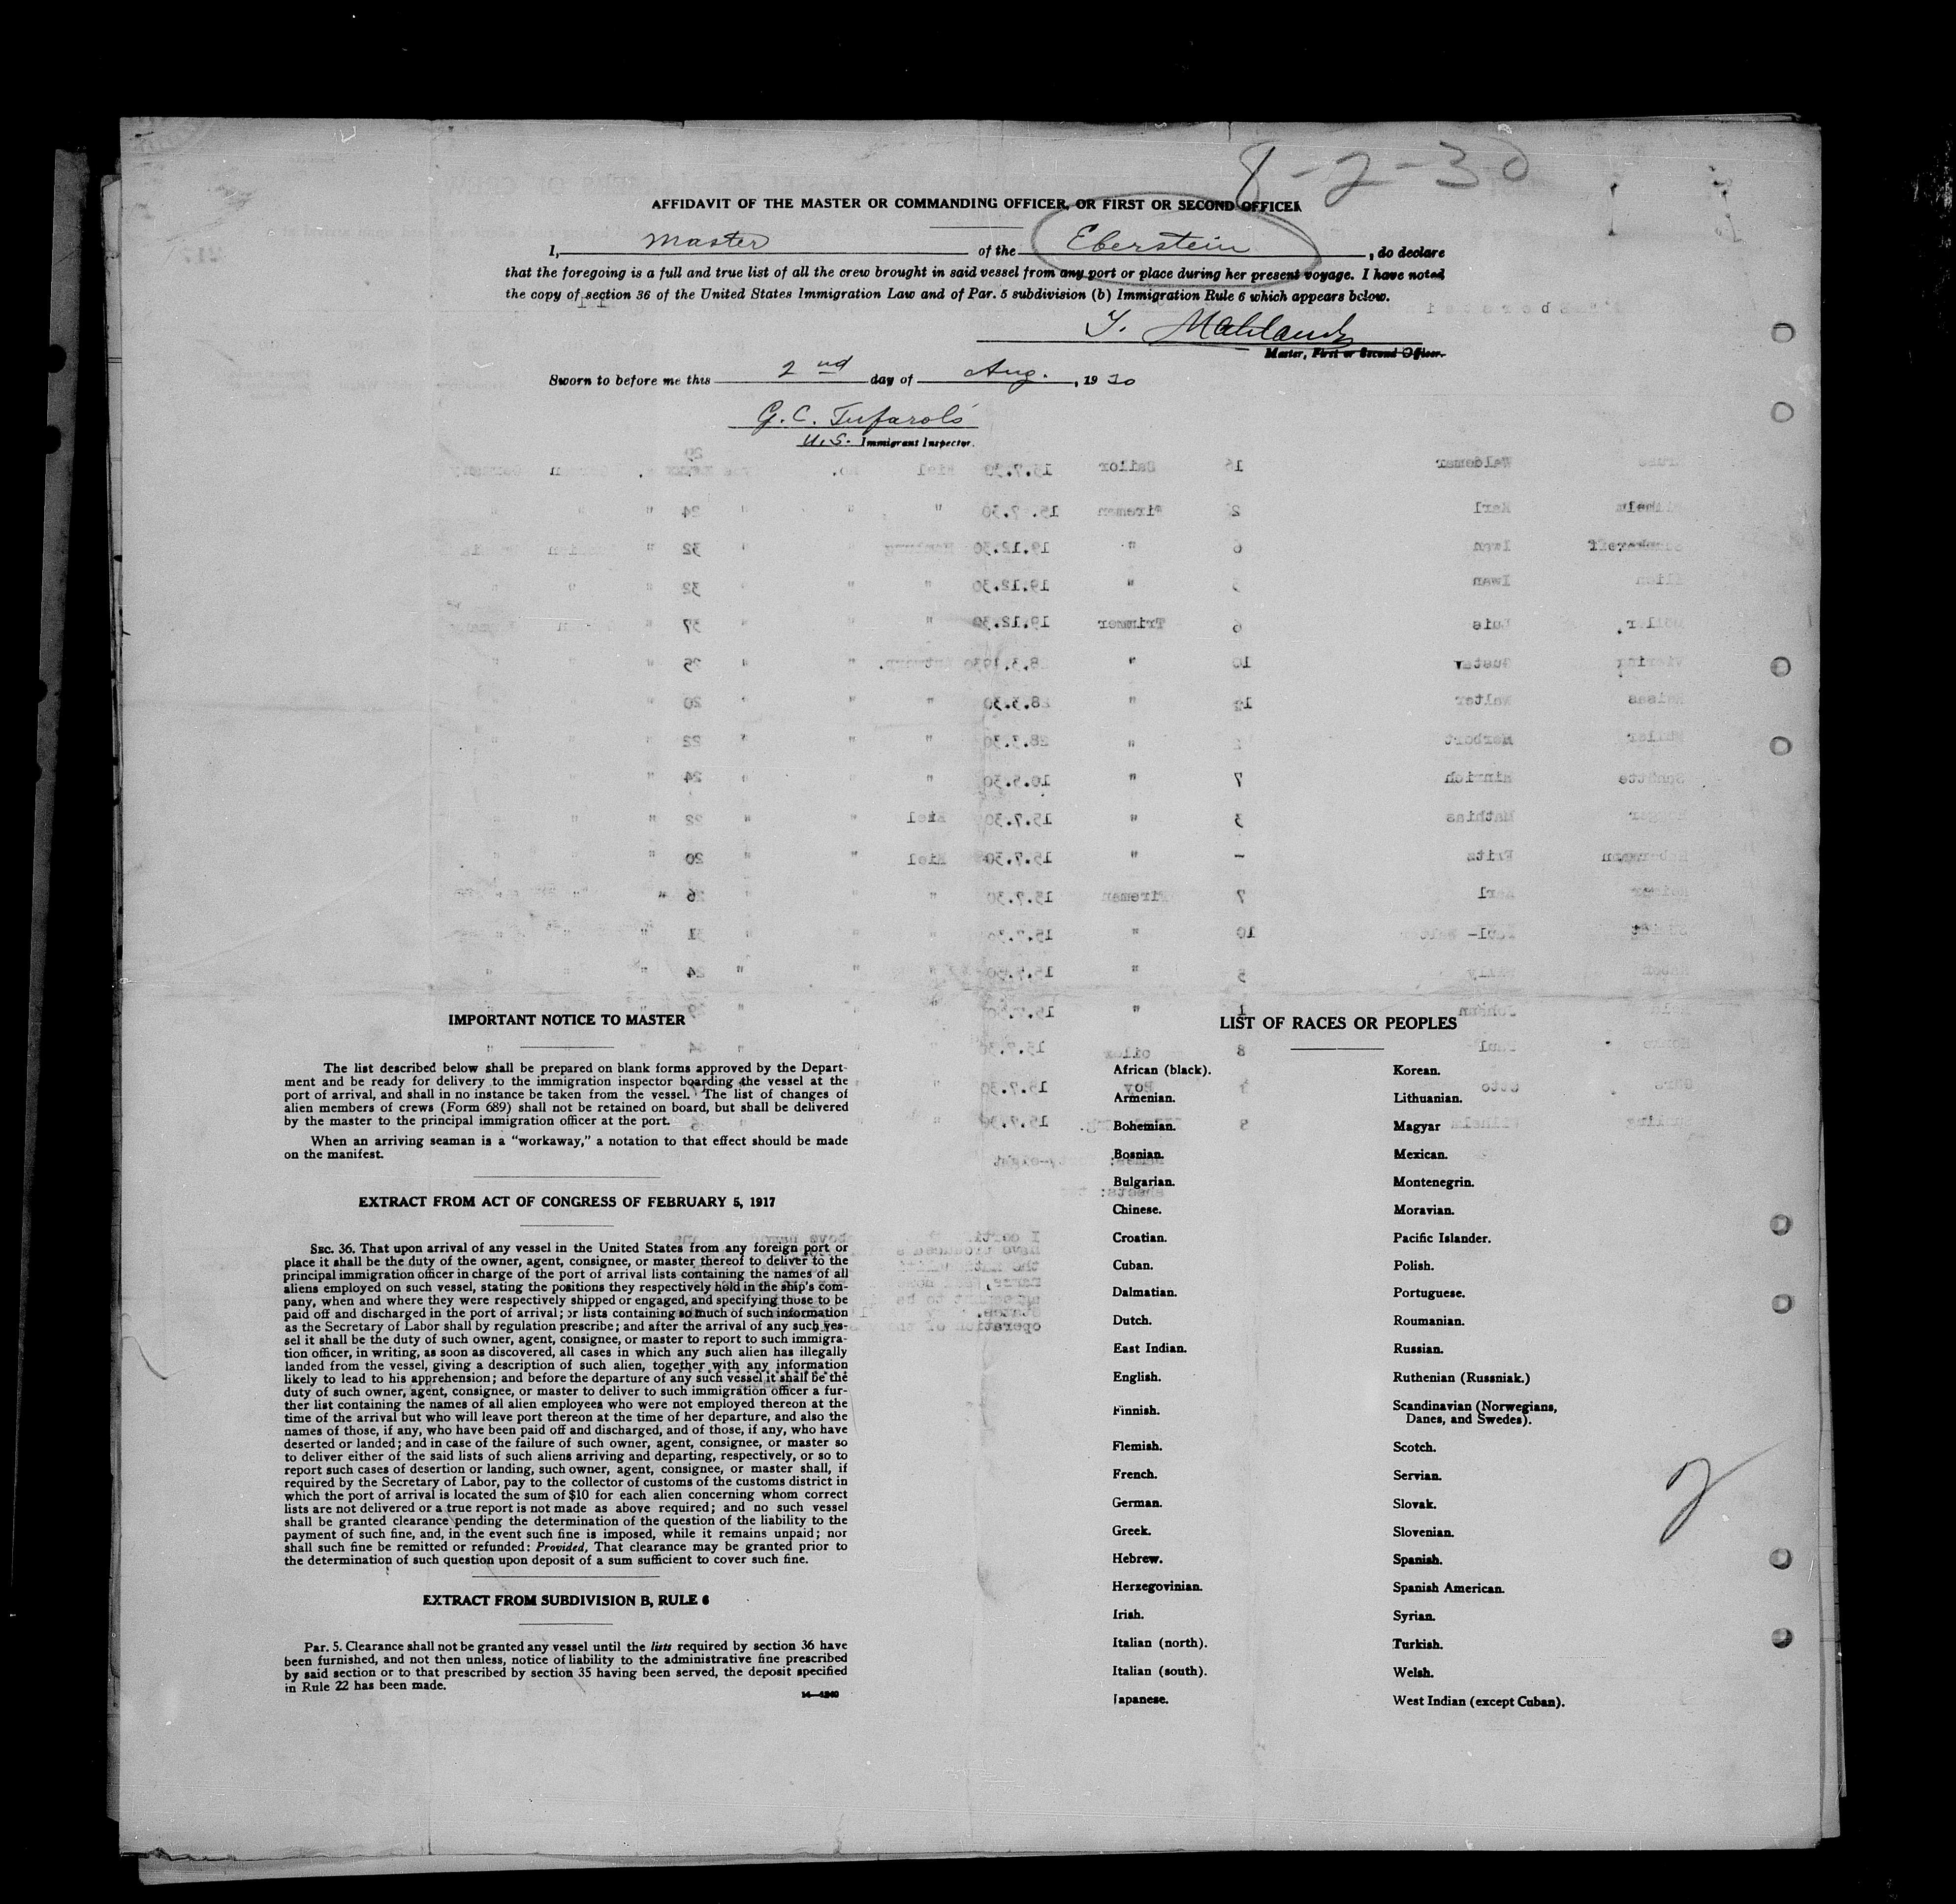 8-2-30
AFFIDAVIT OF THE MASTER OR COMMANDING OFFICER, OR FIRST OR SECOND OFFICER
I, Master of the Eberstein, do declare
that the foregoing is a full and true list of all the crew brought in said vessel from any port or place during her present voyage. I have noted
the copy of section 36 of the United States Immigration Law and of Par. 5 subdivision (b) Immigration Rule 6 which appears below.
Master, First or Second Officer.
Sworn to before me this 2nd day of Aug., 1930
G. C.
U.S. Immigrant Inspector.
IMPORTANT NOTICE TO MASTER
The list described below shall be prepared on blank forms approved by the Depart-
ment and be ready for delivery to the immigration inspector boarding the vessel at the
port of arrival, and shall in no instance be taken from the vessel. The list of changes of
alien members of crews (Form 689) shall not be retained on board, but shall be delivered
by the master to the principal immigration officer at the port.
When an arriving seaman is a “workaway,” a notation to that effect should be made
on the manifest.
EXTRACT FROM ACT OF CONGRESS OF FEBRUARY 5, 1917
SEC. 36. That upon arrival of any vessel in the United States from any foreign port or
place it shall be the duty of the owner, agent, consignee, or master thereof to deliver to the
principal immigration officer in charge of the port of arrival lists containing the names of all
aliens employed on such vessel, stating the positions they respectively hold in the ship's com-
pany, when and where they were respectively shipped or engaged, and specifying those to be
paid off and discharged in the port of arrival; or lists containing so much of such information
as the Secretary of Labor shall by regulation prescribe; and after the arrival of any such ves-
sel it shall be the duty of such owner, agent, consignee, or master to report to such immigra-
tion officer, in writing, as soon as discovered, all cases in which any such alien has illegally
landed from the vessel, giving a description of such alien, together with any information
likely to lead to his apprehension; and before the departure of any such vessel it shall be the
duty of such owner, agent, consignee, or master to deliver to such immigration officer a fur-
ther list containing the names of all alien employees who were not employed thereon at the
time of the arrival but who will leave port thereon at the time of her departure, and also the
names of those, if any, who have been paid off and discharged, and of those, if any, who have
deserted or landed; and in case of the failure of such owner, agent, consignee, or master so
to deliver either of the said lists of such aliens arriving and departing, respectively, or so to
report such cases of desertion or landing, such owner, agent, consignee, or master shall, if
required by the Secretary of Labor, pay to the collector of customs of the customs district in
which the port of arrival is located the sum of $10 for each alien concerning whom correct
lists are not delivered or a true report is not made as above required; and no such vessel
shall be granted clearance pending the determination of the question of the liability to the
payment of such fine, and, in the event such fine is imposed, while it remains unpaid; nor
shall such fine be remitted or refunded: Provided, That clearance may be granted prior to
the determination of such question upon deposit of a sum sufficient to cover such fine.
EXTRACT FROM SUBDIVISION B, RULE 6
Par. 5. Clearance shall not be granted any vessel until the lists required by section 36 have
been furnished, and not then unless, notice of liability to the administrative fine prescribed
by said section or to that prescribed by section 35 having been served, the deposit specified
in Rule 22 has been made.
14—1240
LIST OF RACES OR PEOPLES
African (black).
Armenian.
Bohemian.
Bosnian.
Bulgarian.
Chinese.
Croatian.
Cuban.
Dalmatian.
Dutch.
East Indian.
English.
Finnish.
Flemish.
French.
German.
Greek.
Hebrew.
Herzegovinian.
Irish.
Italian (north).
Italian (south).
Japanese.
Korean.
Lithuanian.
Magyar
Mexican.
Montenegrin.
Moravian.
Pacific Islander.
Polish.
Portuguese.
Roumanian.
Russian.
Ruthenian (Russniak.)
Scandinavian (Norwegians,
Danes, and Swedes).
Scotch.
Servian.
Slovak.
Slovenian.
Spanish.
Spanish American.
Syrian.
Turkish.
Welsh.
West Indian (except Cuban).
2